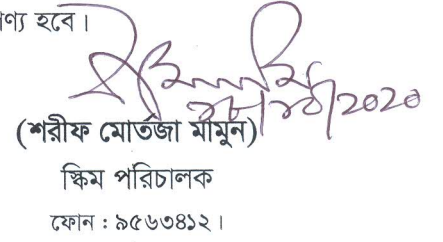 ণ্য হবে।
২০২০
(শরীফ মোর্তজা মামুন)
স্কিম পরিচালক
ফোন : ৯৫৬৩৪১২।